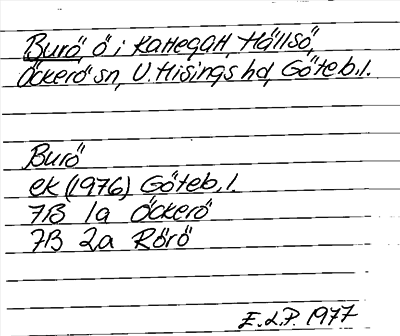 Burö ö i Kattegatt, Hällsö,
Öckerö sn, V. Hisings hd, Göteb. l.
Burö
ek (1976) Göteb. l.
7B 1a Öckerö
7B 2a Rörö
E.L.P. 1977